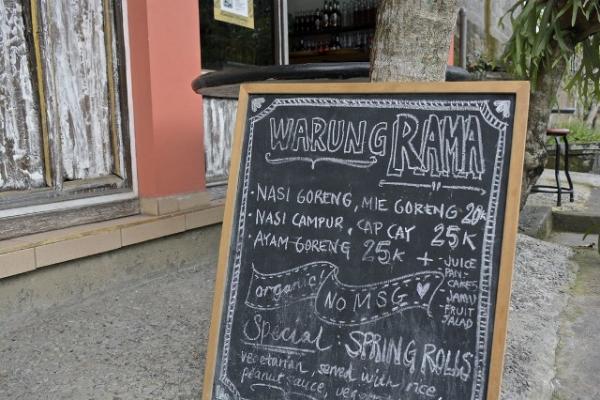 WARUNG RAMA
· NASI GORENG, MIE GORENG 20K
· NASI CAMPUR, CAP CAY 25K
· AYAM GORENG 25K
+ · JUICE
PAN-
CAKES
JAMU
· FRUIT
SALAD
organic!
No MSG
Special: SPRING ROLLS
vegetarian, served with rice
peanut sauce,